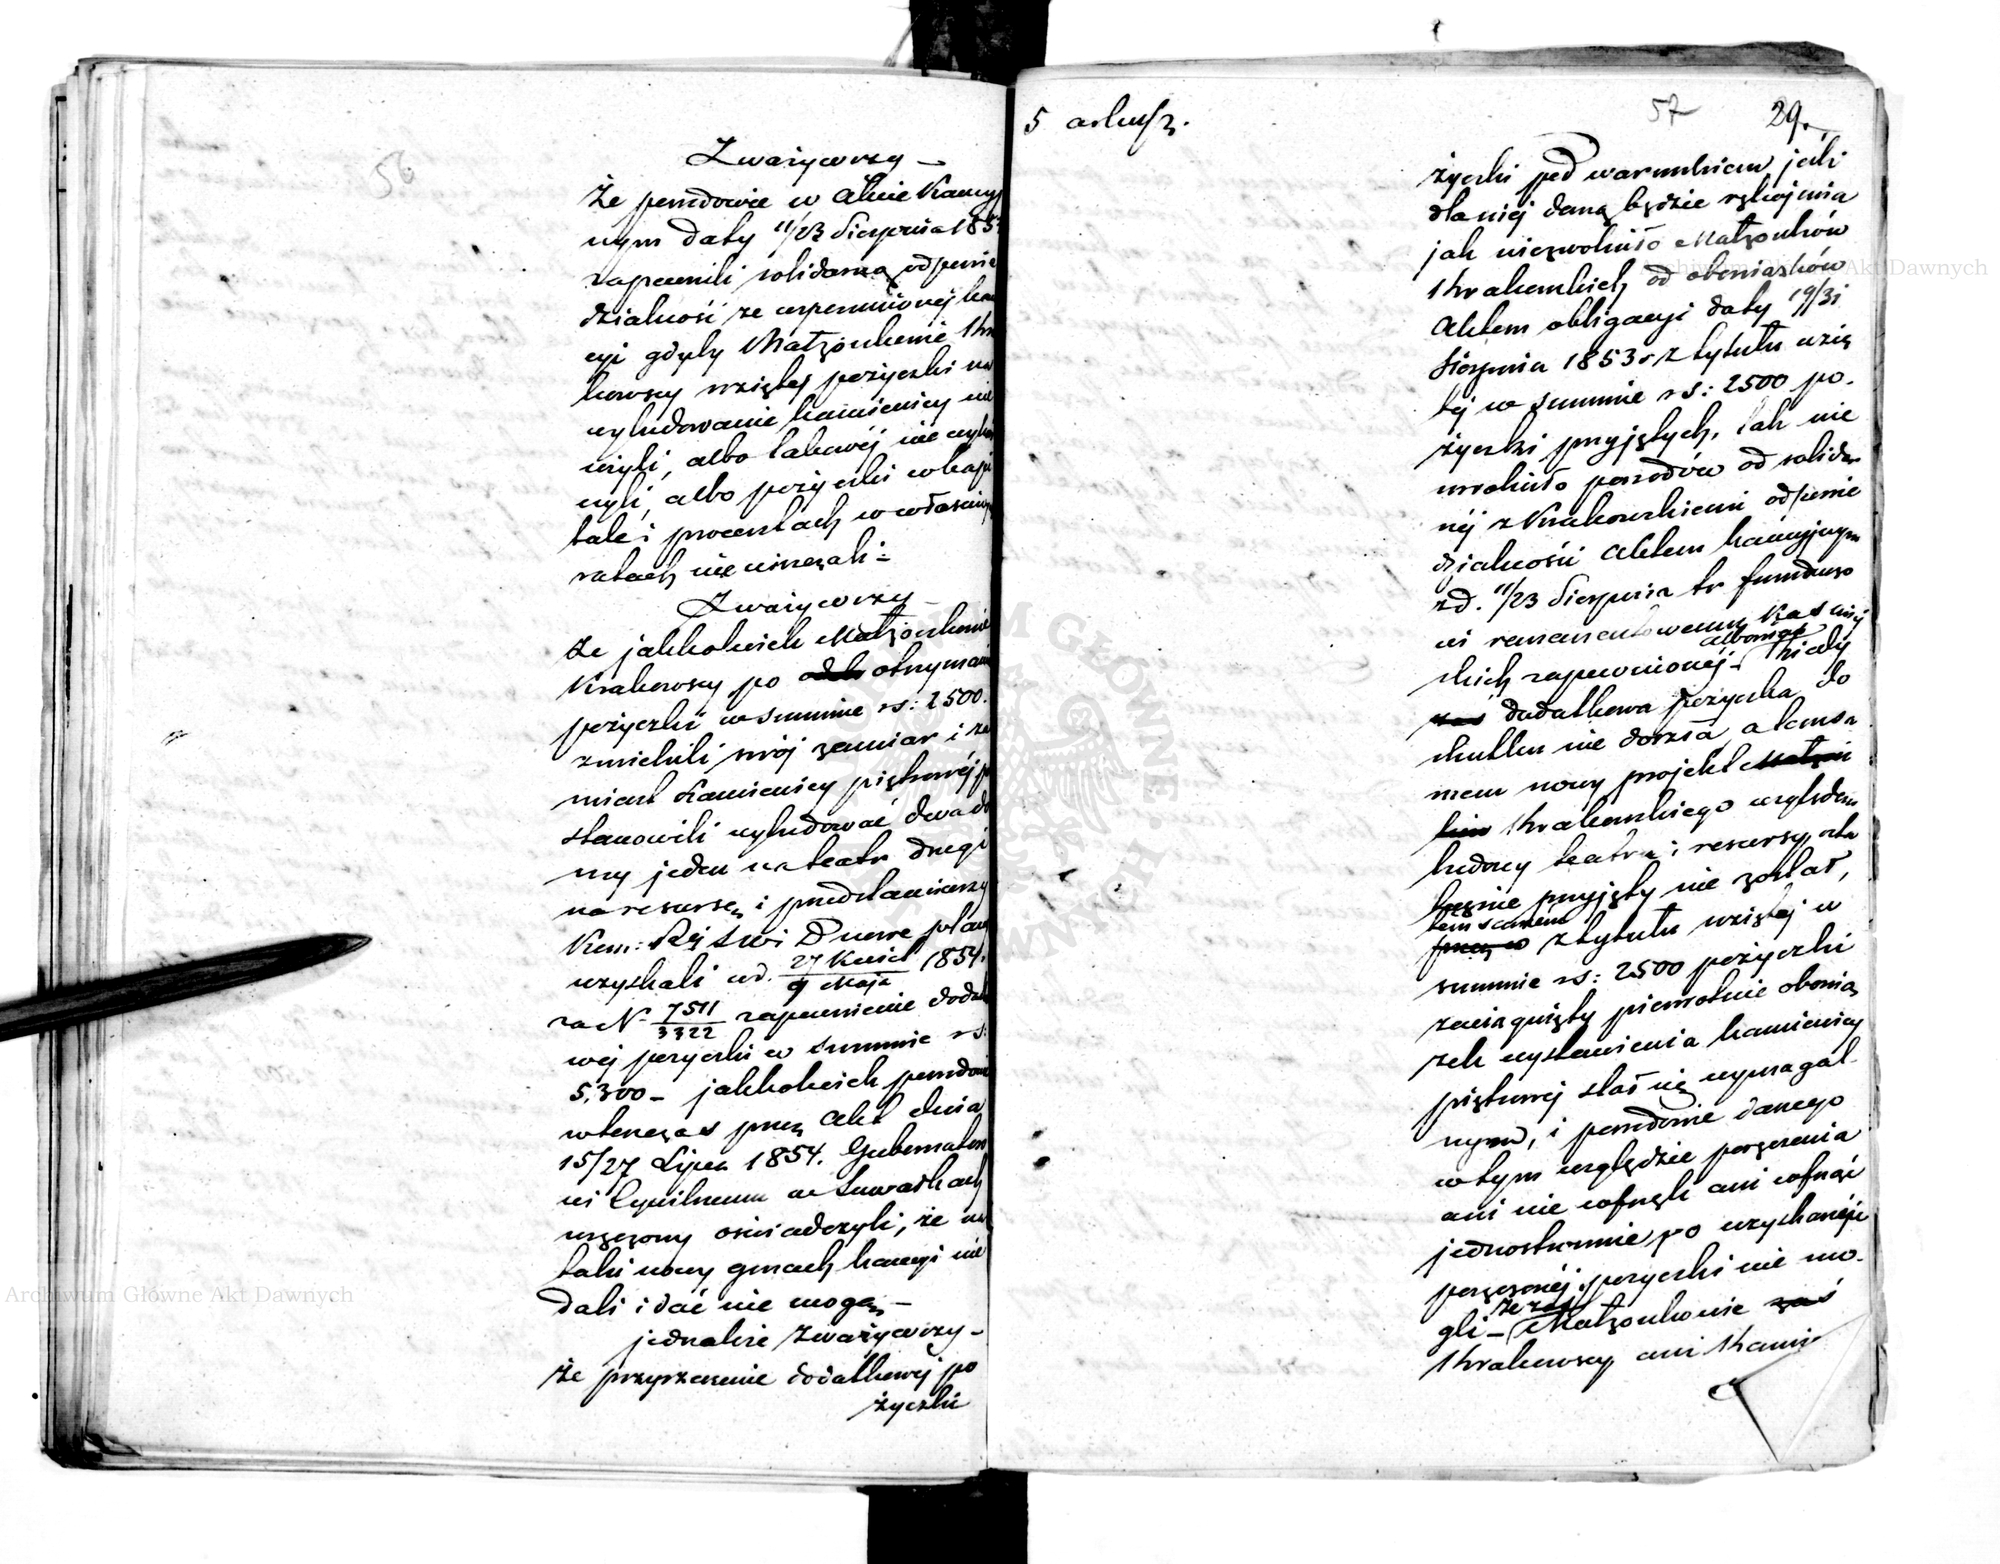 56
Zważywszy –
że pozwowie w Akcie Kaucyj
nym daty 11/23 Sierpnia 185
zapewnili solidarną odpowie
dzialność ze wspomnionej kau
cyi gdyby Małżonkowie Kra
kowscy wziętej pożyczki na
wybudowanie kamienicy nie
użyli, albo takowej nie wyko
czyli, albo pożyczki w kapi
tale i procentach w właściwych
ratach nie uiszczali –
Zważywszy –
że jakkolwiek Małżonkowie
Krakowscy po otrzymaniu
pożyczki w summie rs: 2500.
zmienili swój zamiar i za
miast Kamienicy piętrowej po
stanowili wybudować dwa do
my jeden na teatr drugi
na resursę i przedstawiwszy
Kom: Rząd: Swi Duowe plany
uzyskali w d. 27 Kwiet / 9 Maja 1854.
za N. 7511/3322 zapewnienie dodatko
wej pożyczki w summie rs:
5,300 – jakkolwiek pozwowie
wtenczas przez Akt dnia
15/27 Lipca 1854. Gubernatoro
wi Cywilnemu w Suwałkach
wręczony oświadczyli, że na
taki nowy gmach kaucyi nie
dali i dać nie mogą –
jednakże Zważywszy –
że przyrzeczenie dodatkowej po
życzki
5 arkusz.
57 29.
życzki pod warunkiem jeśli
dla niej daną będzie rękojmia
jak niezwolniło Małżonków
Krakowskich od obowiązków
Aktem obligacyi daty 19/31
Sierpnia 1853 r z tytułu wzię
tej w summie rs: 2500 po.
życzki przyjętych, tak nie
uwolniło pozwów od solidar
nej z Krakowskiemi odpowie
dzialności Aktem kaucyjnym
z d. 11/23 Sierpnia tr funduszo
wi remanentowemu Kass miej
skich zapewnionej – albowiem kiedy
zaś dodatkowa pożyczka do
skutku nie doszła, a tem sa
mem nowy projekt Małżon
ków Krakowskiego względem
budowy teatru i resursy osta
tecznie przyjęty nie został,
tem samem
przez co z tytułu wziętej w
summie rs: 2500 pożyczki
zaciągnięty pierwotnie obowią
zek wystawienia kamienicy
piętrowej stał się wymagal-
nym, i pozwowie danego
w tym względzie poręczenia
ani nie cofnęli ani cofnąć
jednostronnie po uzyskanej
poręczonej pożyczki nie mo-
gli – że zaś Małżonkowie zaś
Krakowscy ani Kamie
Archiwum Główne Akt Dawnych
Archiwum Główne Akt Dawnych